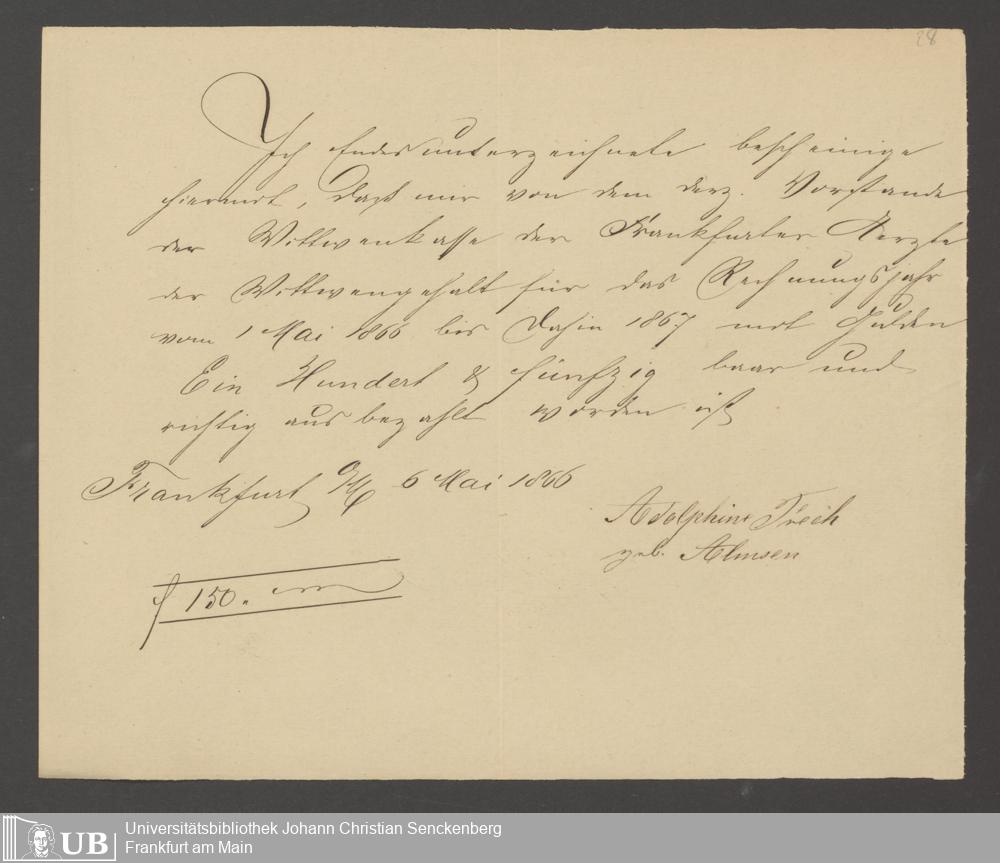 28
Ich Endesunterzeichnete bescheinige
hiermit, daß mir von dem derz. Vorstande
der Wittwenkasse der Frankfurter Aerzte
der Wittwengehalt für das Rechnungsjahr
vom 1 Mai 1866 bis dahin 1867 mit Gulden
Ein Hundert & fünfzig baar und
richtig ausbezahlt worden ist
Frankfurt a/M 6 Mai 1866
Adolphine
geb. Almsen
f 150.
UB
Universitätsbibliothek Johann Christian Senckenberg
Frankfurt am Main